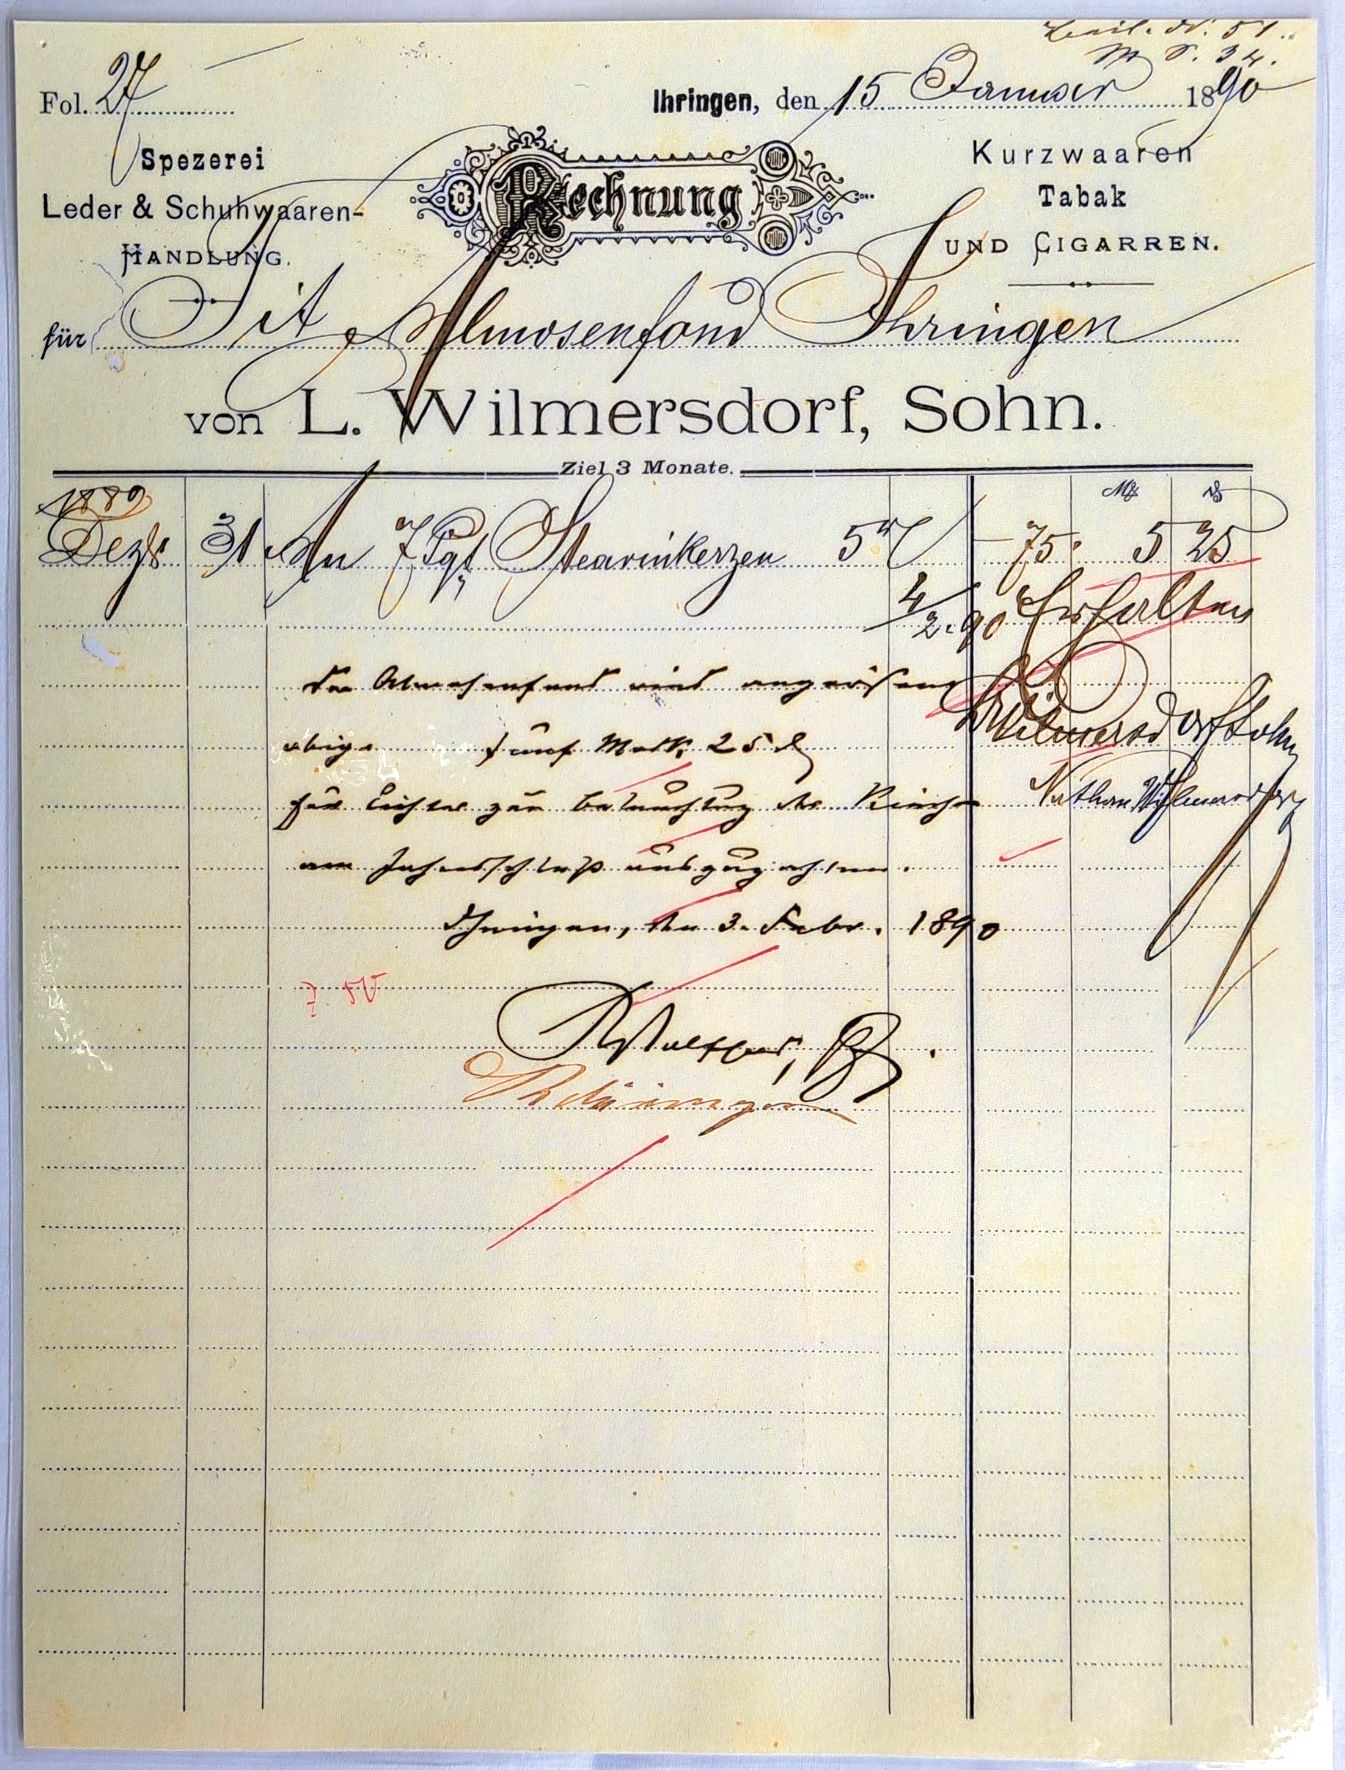 Beil. N. 51.
S. 34.
Fol. 27
Ihringen, den 15 Januar 1890
Spezerei
Leder & Schuhwaaren-
Handlung.
Rechnung
Kurzwaaren
Tabak
und Cigarren.
für Tit. Almosenfond Ihringen
von L. Wilmersdorf, Sohn.
Ziel 3 Monate.
1889
Dezbr 31 An 7 Pqt Stearinkerzen - 75. 5 25
4/2.90 Erhalten
L. Wilmersdorf Sohn
Nathan Wilmersdorf
Der Almosenfond wird angewiesen
obige fünf Mark 25 ₰
für Lichter zur Beleuchtung der Kirche
am Jahresschluß auszuzahlen.
Ihringen, den 3. Febr. 1890